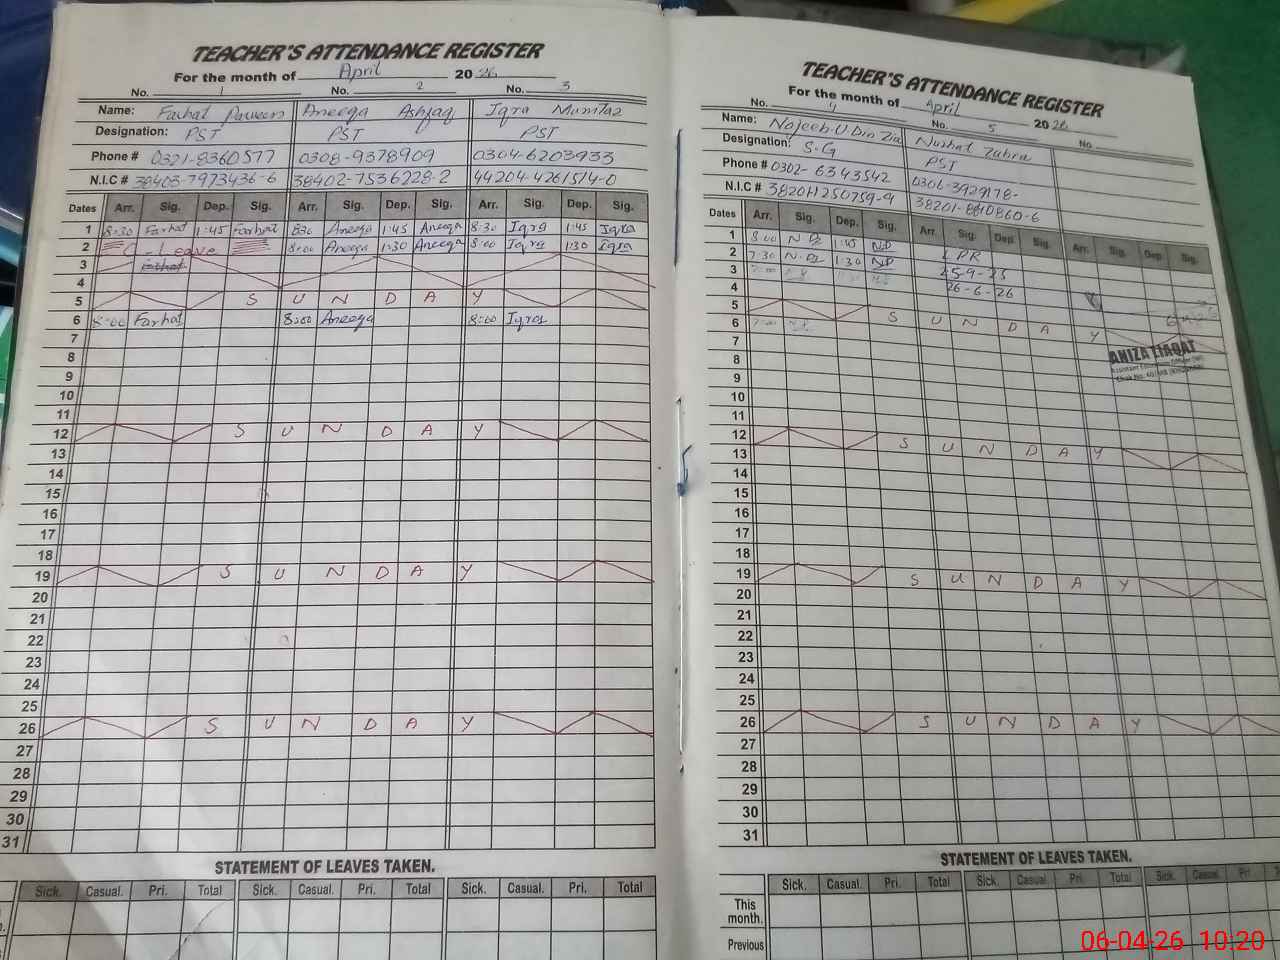 TEACHER'S ATTENDANCE REGISTER
For the month of April 2026
No. 1 No. 2 No. 3
Name: Farhat Parveen Aneeqa Ashfaq Iqra Mumtaz
Designation: PST PST PST
Phone # 0321-8360577 0308-9378909 0304-6203933
N.I.C # 38403-7973436-6 38402-7536228-2 44204-4261514-0
Dates Arr. Sig. Dep. Sig. Arr. Sig. Dep. Sig. Arr. Sig. Dep. Sig.
1 8:30 Farhat 1:45 Farhat 830 Aneeqa 1:45 Aneeqa 8:30 Iqra 1:45 Iqra
2 C - Leave 8:00 Aneeqa 1:30 Aneeqa 8:00 Iqra 1:30 Iqra
3 Farhat
4
5 S U N D A Y
6 8:00 Farhat 8:00 Aneeqa 8:00 Iqra
7
8
9
10
11
12 S U N D A Y
13
14
15
16
17
18
19 S U N D A Y
20
21
22
23
24
25
26 S U N D A Y
27
28
29
30
31
STATEMENT OF LEAVES TAKEN.
Sick. Casual. Pri. Total Sick. Casual. Pri. Total Sick. Casual. Pri. Total
TEACHER'S ATTENDANCE REGISTER
For the month of April 2026
No. 4 No. 5 No.
Name: Najeeb-U Din Zia Nuzhat Zahra
Designation: S.G PST
Phone # 0302-6343542
N.I.C # 38201-840860-6
Dates Arr. Sig. Dep. Sig. Arr. Sig. Dep. Sig. Arr. Sig. Dep. Sig.
1 8:00 1:45 LPR
2 7:30 1:30 25-9-25
3 26-6-26
4
5 S U N D A Y
6
7
8
9
10
11
12 S U N D A Y
13
14
15
16
17
18
19 S U N D A Y
20
21
22
23
24
25
26 S U N D A Y
27
28
29
30
31
ANIZA LIAQAT
STATEMENT OF LEAVES TAKEN.
Sick. Casual. Pri. Total Sick. Casual. Pri. Total Sick. Casual. Pri
This month.
Previous
06-04-26 10:20